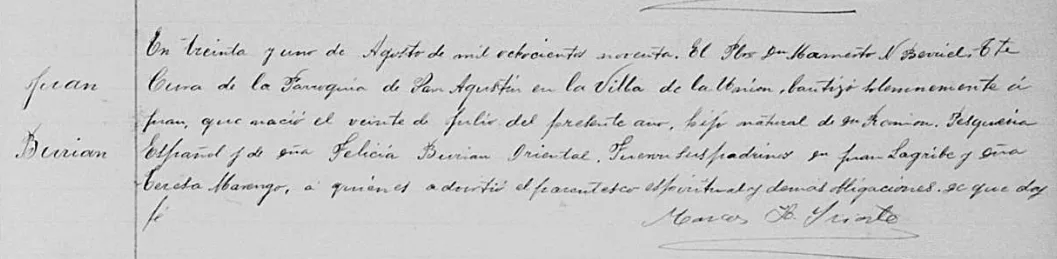 Juan
Burian
En treinta y uno de Agosto de mil ochocientos noventa. El Pbro Dn Mamerto N Berriel, Tte
Cura de la Parroquia de San Agustin en la Villa de la Union, bautizó solemnemente á
Juan, que nació el veinte de Julio del presente año, hijo natural de Dn Ramon Pesqueria
Español y de Dña Felicia Burian Oriental. Fueron sus padrinos Dn Juan Lagribe y Dña
Teresa Marengo, a quienes advirtió el parentesco espiritual y demás obligaciones. de que doy
fé
Marcos R. Iriarte